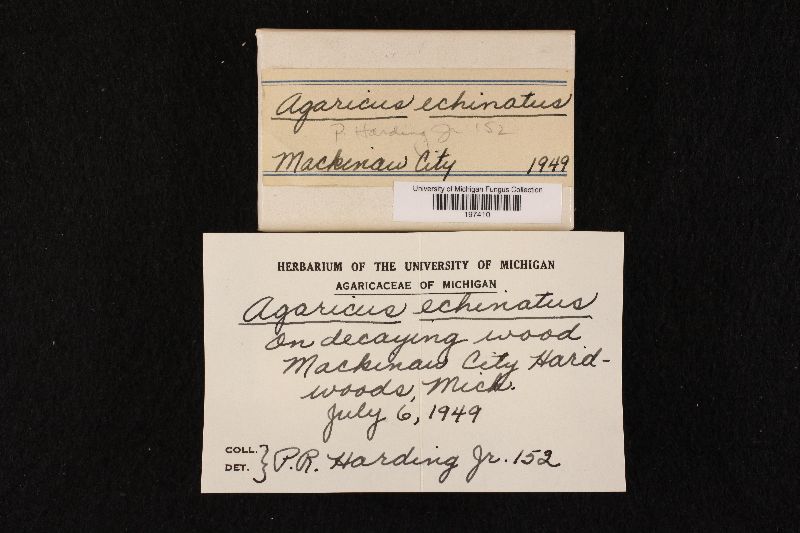 Agaricus echinatus
P. Harding Jr. 152
Mackinaw City 1949
University of Michigan Fungus Collection
197410
HERBARIUM OF THE UNIVERSITY OF MICHIGAN
AGARICACEAE OF MICHIGAN
Agaricus echinatus
On decaying wood
Mackinaw City Hard-
woods, Mich.
July 6, 1949
COLL.
DET. } P.R. Harding Jr. 152